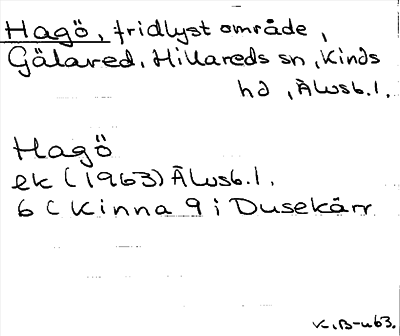 Hagö, fridlyst område,
Gälared, Hillareds sn, Kinds
hd, Älvsb.l.
Hagö
ek (1963) Älvsb.l.
6 C Kinna 9 i Dusekärr
K.B-u 63.